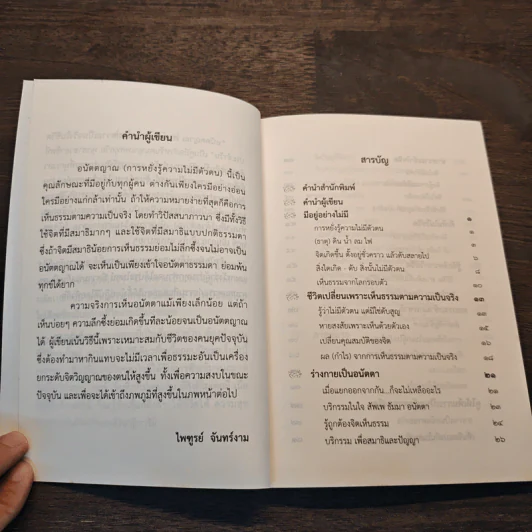 คำนำผู้เขียน
อนัตตญาณ (การหยั่งรู้ความไม่มีตัวตน) นี้เป็น
คุณลักษณะที่มีอยู่กับทุกผู้คน ต่างกันเพียงใครมีอย่างอ่อน
ใครมีอย่างแก่กล้าเท่านั้น ถ้าให้ความหมายง่ายที่สุดก็คือการ
เห็นธรรมตามความเป็นจริง โดยทำวิปัสสนาภาวนา ซึ่งมีทั้งวิธี
ใช้จิตที่มีสมาธิมากๆ และใช้จิตที่มีสมาธิแบบปกติธรรมดา
ซึ่งถ้าจิตมีสมาธิน้อยการเห็นธรรมย่อมไม่ลึกซึ้งจนไม่อาจเป็น
อนัตตญาณได้ จะเห็นเป็นเพียงเข้าใจอนัตตาธรรมดา ย่อมพ้น
ทุกข์ได้ยาก
ความจริงการเห็นอนัตตาแม้เพียงเล็กน้อย แต่ถ้า
เห็นบ่อยๆ ความลึกซึ้งย่อมเกิดขึ้นทีละน้อยจนเป็นอนัตตญาณ
ได้ ผู้เขียนเน้นวิธีนี้เพราะเหมาะสมกับชีวิตของคนยุคปัจจุบัน
ซึ่งต้องทำมาหากินแทบจะไม่มีเวลาเพื่อธรรมะอันเป็นเครื่อง
ยกระดับจิตวิญญาณของตนให้สูงขึ้น ทั้งเพื่อความสงบในขณะ
ปัจจุบัน และเพื่อจะได้เข้าถึงภพภูมิที่สูงขึ้นในภพหน้าต่อไป
ไพฑูรย์ จันทร์งาม
สารบัญ
คำนำสำนักพิมพ์
คำนำผู้เขียน
มีอยู่อย่างไม่มี ๑
การหยั่งรู้ความไม่มีตัวตน ๑
(ธาตุ) ดิน น้ำ ลม ไฟ
จิตเกิดขึ้น ตั้งอยู่ชั่วคราว แล้วดับสลายไป ๖
สิ่งใดเกิด - ดับ สิ่งนั้นไม่มีตัวตน ๘
เห็นธรรมจากโลกรอบตัว
ชีวิตเปลี่ยนเพราะเห็นธรรมตามความเป็นจริง ๑๓
รู้ว่าไม่มีตัวตน แต่มีใช่ดับสูญ
หายสงสัยเพราะเห็นด้วยตัวเอง ๑๕
เปลี่ยนคุณสมบัติของจิต ๑๖
ผล (กำไร) จากการเห็นธรรมตามความเป็นจริง ๑๘
ร่างกายเป็นอนัตตา ๒๑
เมื่อแยกออกจากกัน...ก็จะไม่เหลืออะไร ๒๑
บริกรรมในใจ สัพเพ ธัมมา อนัตตา
รู้ถูกต้องจิตเห็นธรรม ๒๔
บริกรรม เพื่อสมาธิและปัญญา ๒๖